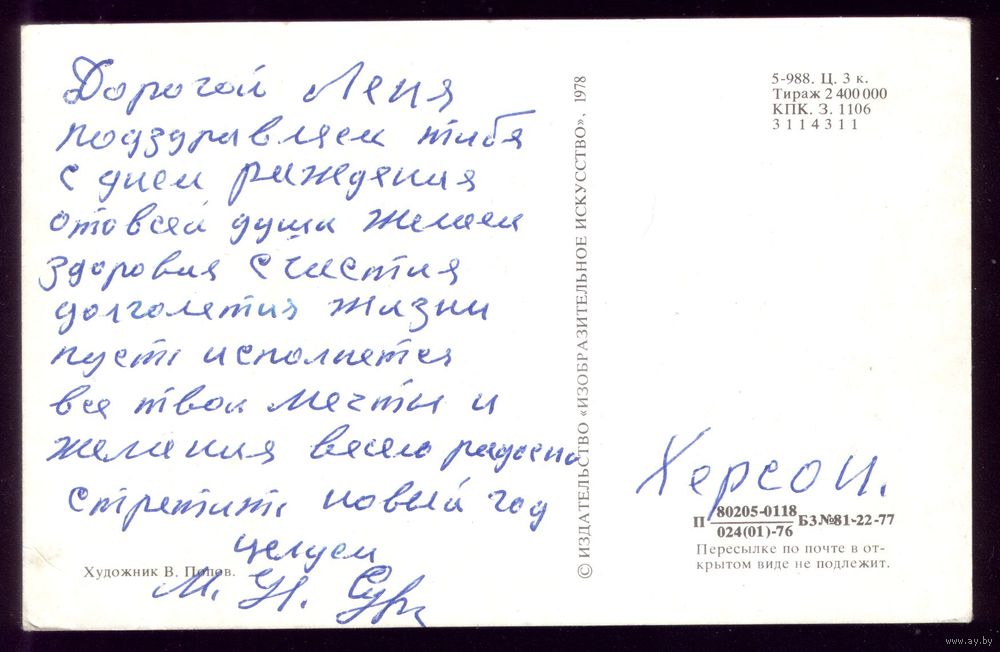 Дорогой Леня
подздравляем тибя
с днем раждения
отовсей души желаем
здоровия счистия
долголетия жизни
пусть исполнется
все твои мечты и
желания весело радосно
стретить новый год
целуем
М. Н.
Художник В. Попов.
© ИЗДАТЕЛЬСТВО «ИЗОБРАЗИТЕЛЬНОЕ ИСКУССТВО», 1978
5-988. Ц. 3 к.
Тираж 2 400 000
КПК. З. 1106
3 1 1 4 3 1 1
Херсон.
П 80205-0118 БЗ№81-22-77
024(01)-76
Пересылке по почте в от-
крытом виде не подлежит.
www.ay.by